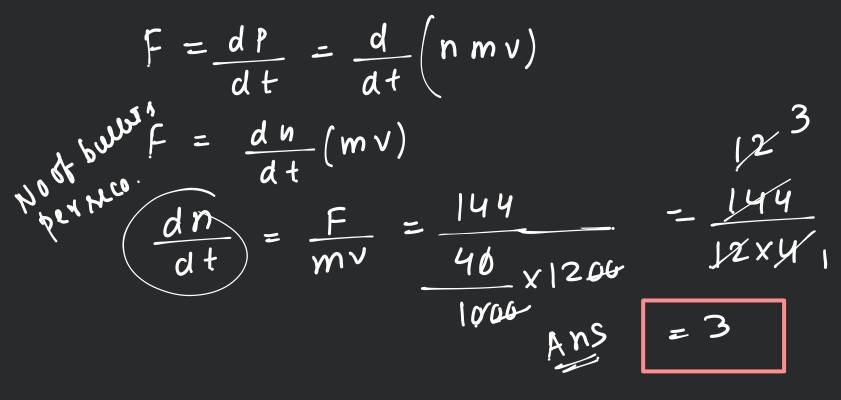 F = dp/dt = d/dt (n m v)
No of bullets per seco.
F = dn/dt (m v)
dn/dt = F/mv = 144/(40/1000 × 1200) = 144/(12×4) 12 3 1
Ans = 3